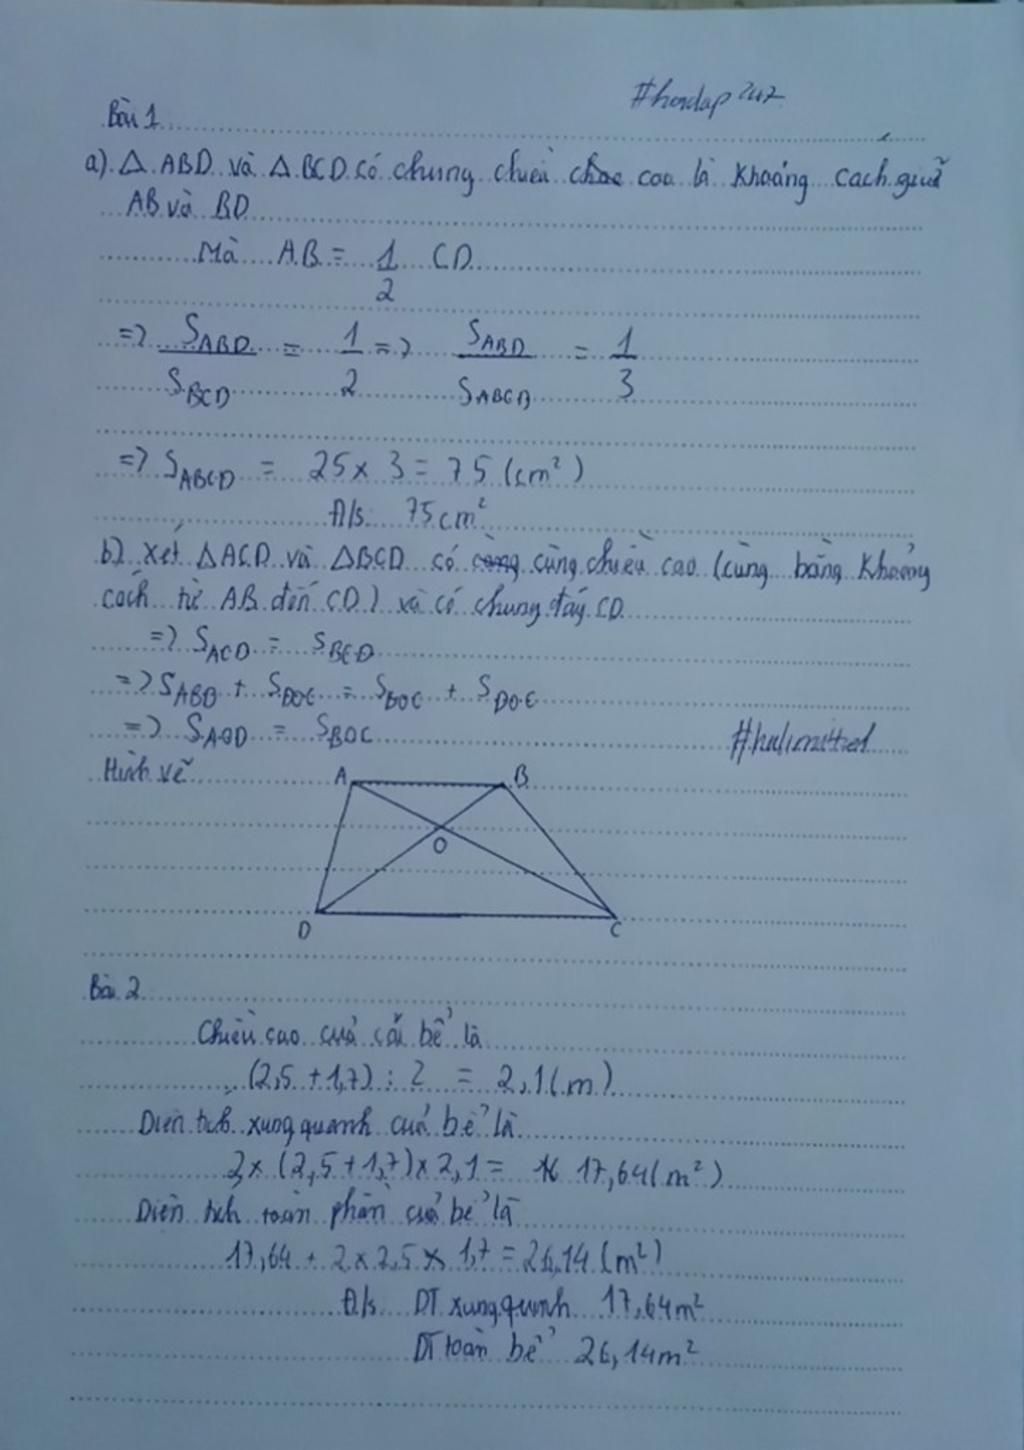 #hoidap247
Bài 1
a) △ABD và △BCD có chung chiều cao là khoảng cách giữa
AB và BD
Mà AB = 1/2 CD
=> S_ABD/S_BCD = 1/2 => S_ABD/S_ABCD = 1/3
=> S_ABCD = 25 x 3 = 75 (cm²)
Đ/s: 75cm²
b) Xét △ACD và △BCD có cùng chiều cao (cùng bằng khoảng
cách từ AB đến CD) và có chung đáy CD
=> S_ACD = S_BCD
=> S_ABD + S_DOC = S_BOC + S_DOC
=> S_AOD = S_BOC
Hình vẽ
A B
O
D C
Bài 2
Chiều cao của cái bể là
(2,5 + 1,7) : 2 = 2,1 (m)
Diện tích xung quanh của bể là
2 x (2,5 + 1,7) x 2,1 = 17,64 (m²)
Diện tích toàn phần của bể là
17,64 + 2 x 2,5 x 1,7 = 26,14 (m²)
Đ/s DT xung quanh 17,64m²
DT toàn bể 26,14m²